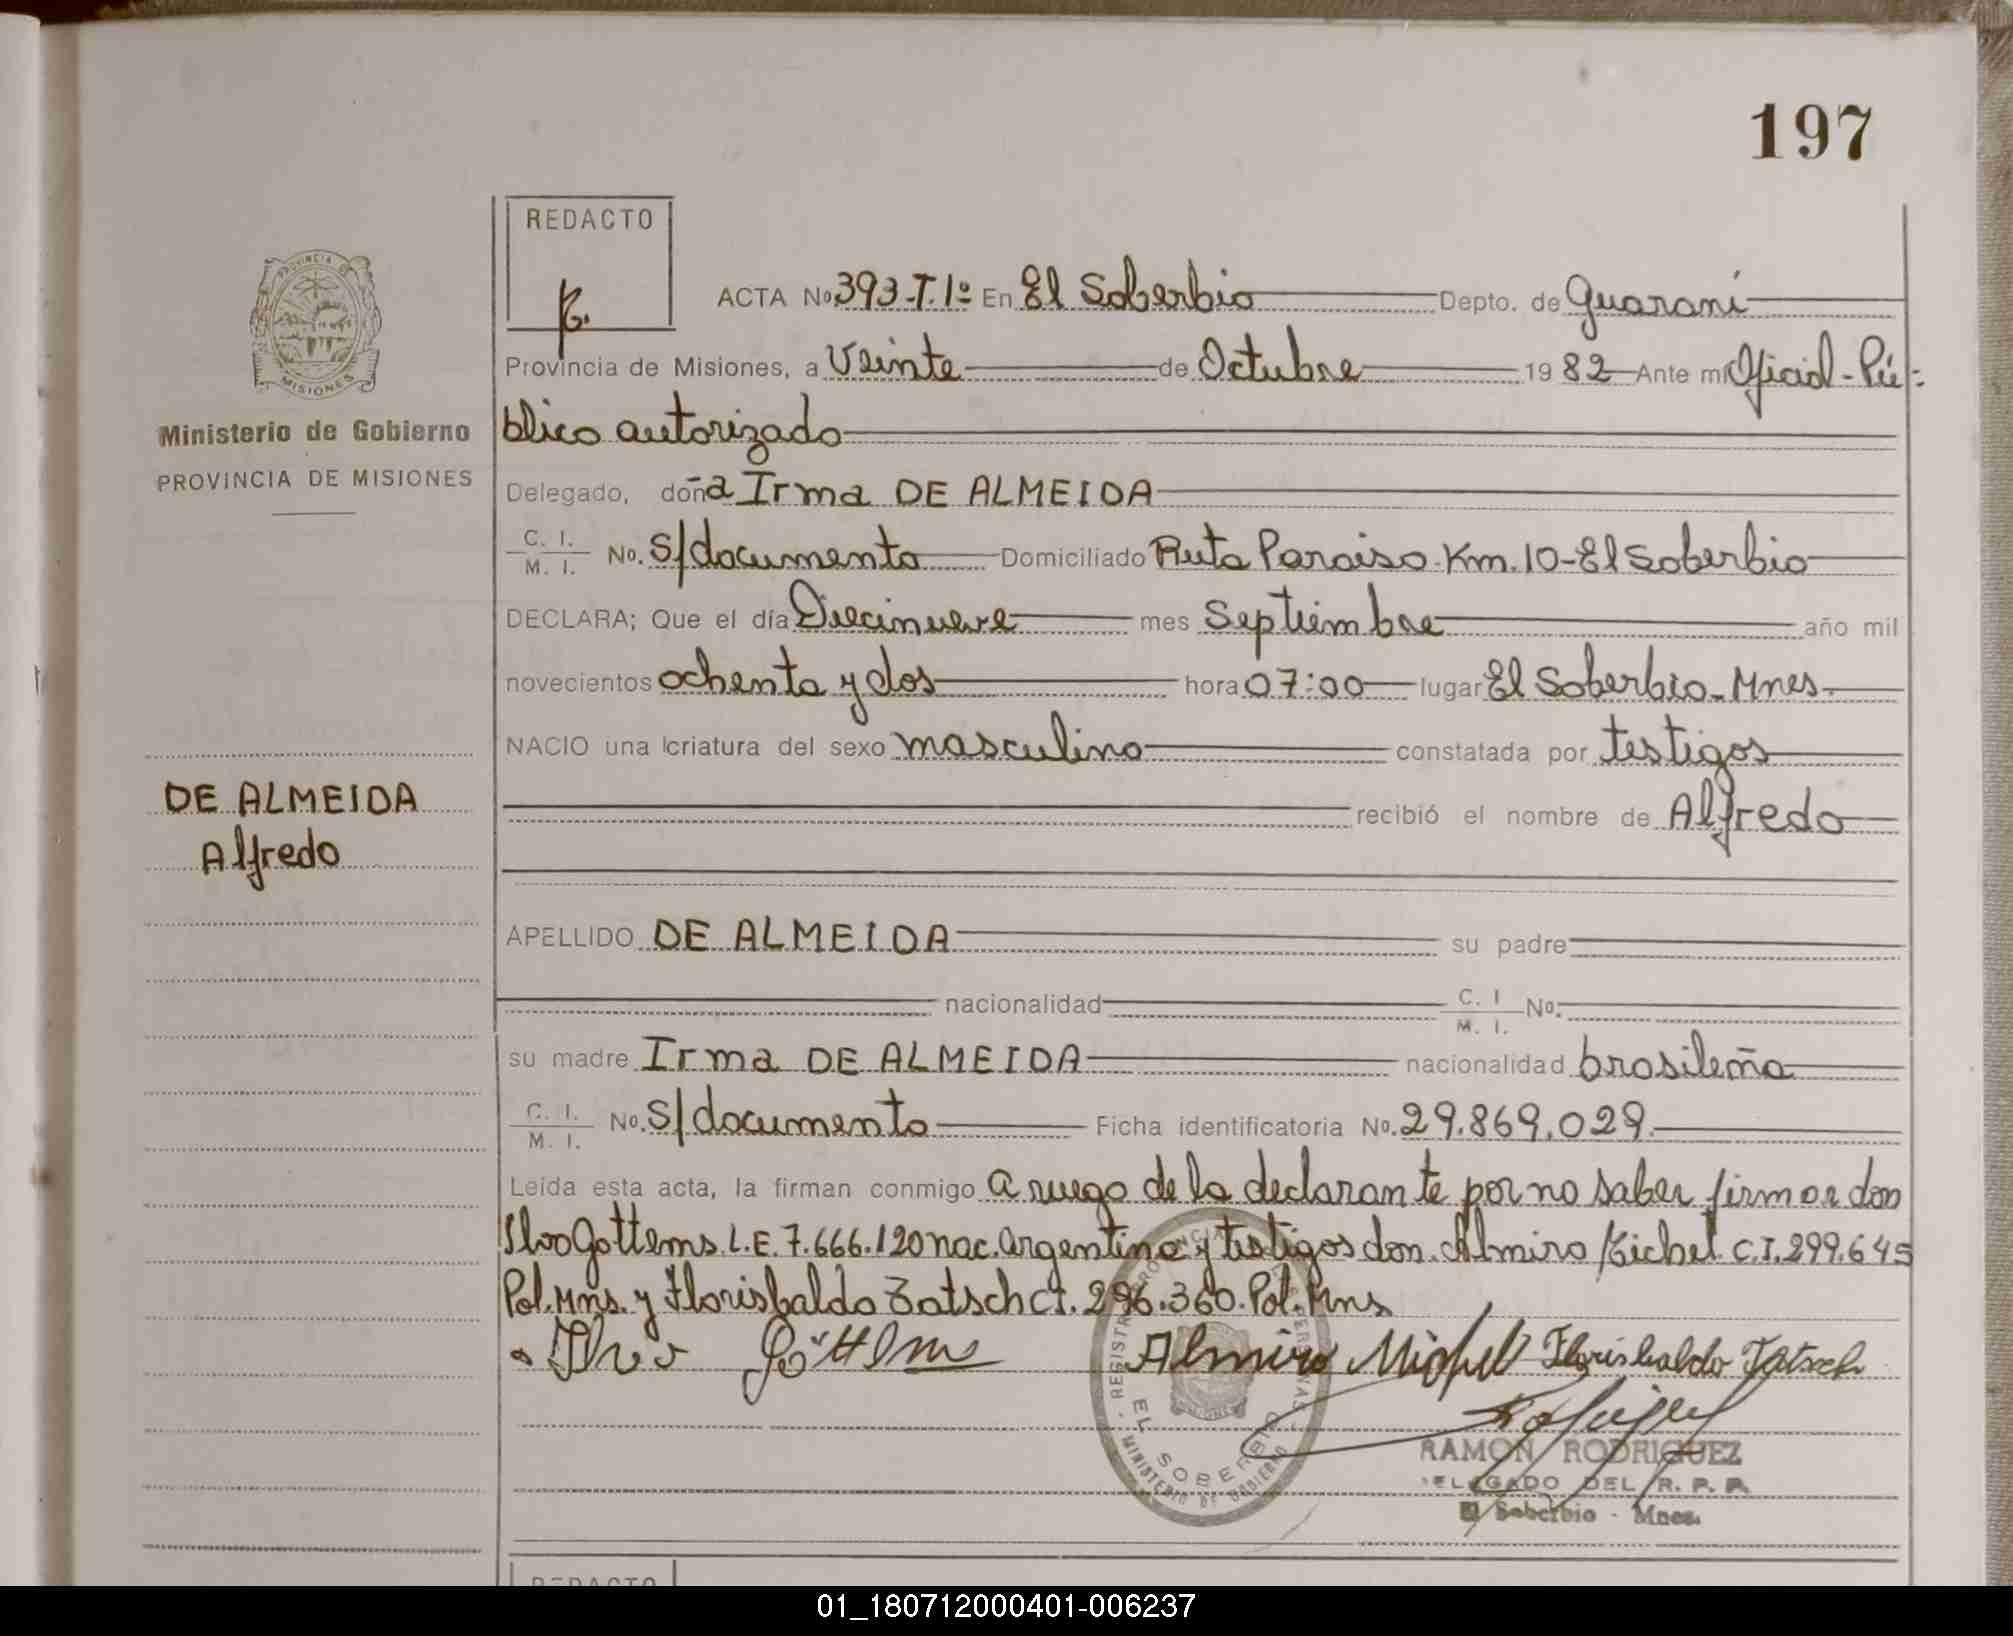 197
REDACTO
ACTA No 393-T.1º En El Soberbio Depto. de Guaraní
Provincia de Misiones, a Veinte de Octubre 1982 Ante mi Oficial-Pú-
blico autorizado
Ministerio de Gobierno
PROVINCIA DE MISIONES
Delegado, doña Irma DE ALMEIDA
C. I. M. I. No. S/documento Domiciliado Ruta Paraiso-Km.10-El Soberbio
DECLARA; Que el día Diecinueve mes Septiembre año mil
novecientos ochenta y dos hora 07:00 lugar El Soberbio-Mnes.
NACIO una criatura del sexo masculino constatada por testigos
DE ALMEIDA
recibió el nombre de Alfredo
Alfredo
APELLIDO DE ALMEIDA su padre
nacionalidad C. I M. I. No.
su madre Irma DE ALMEIDA nacionalidad brasileña
C. I. M. I. No. S/documento Ficha identificatoria No. 29.869.029.
Leída esta acta, la firman conmigo a ruego de la declarante por no saber firmar don
Ilvo Gottems L.E. 7.666.120 nac. argentina y testigos don Almiro Michel C.I. 299.645
Pol. Mns. y Florisbaldo Tatsch CI. 296.360. Pol. Mns
Ilvo Göttems Almiro Michel Florisbaldo Tatsch
EL SOBERBIO
MINISTERIO DE GOBIERNO
RAMON RODRIGUEZ
DELEGADO DEL R. P. P.
El Soberbio - Mnes.
REDACTO
01_180712000401-006237